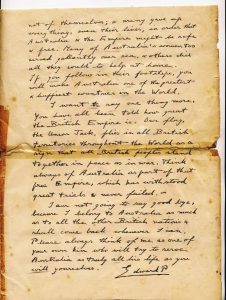 not of themselves; & many gave up
every thing, even their lives, in order that
Australia & the Empire might be safe
& free. Many of Australia's women too
served gallantly over sea, & others did
all they could to help at home.
If you follow in their footsteps, you
will make Australia one of the greatest
& happiest countries in the World.
I want to say one thing more.
You have all been told how great
the British Empire is. Our flag,
the Union Jack, flies in all British
territories throughout the World as a
sign that all British peoples stand
together in peace as in war. Think
always of Australia as part of that
free Empire, which has withstood
great trials & never failed.
I am not going to say good bye,
because I belong to Australia as much
as to all the other British nations &
shall come back whenever I can.
Please always think of me as one of
your own kin, who will try to serve
Australia as truly all his life as you
will yourselves.
Edward P